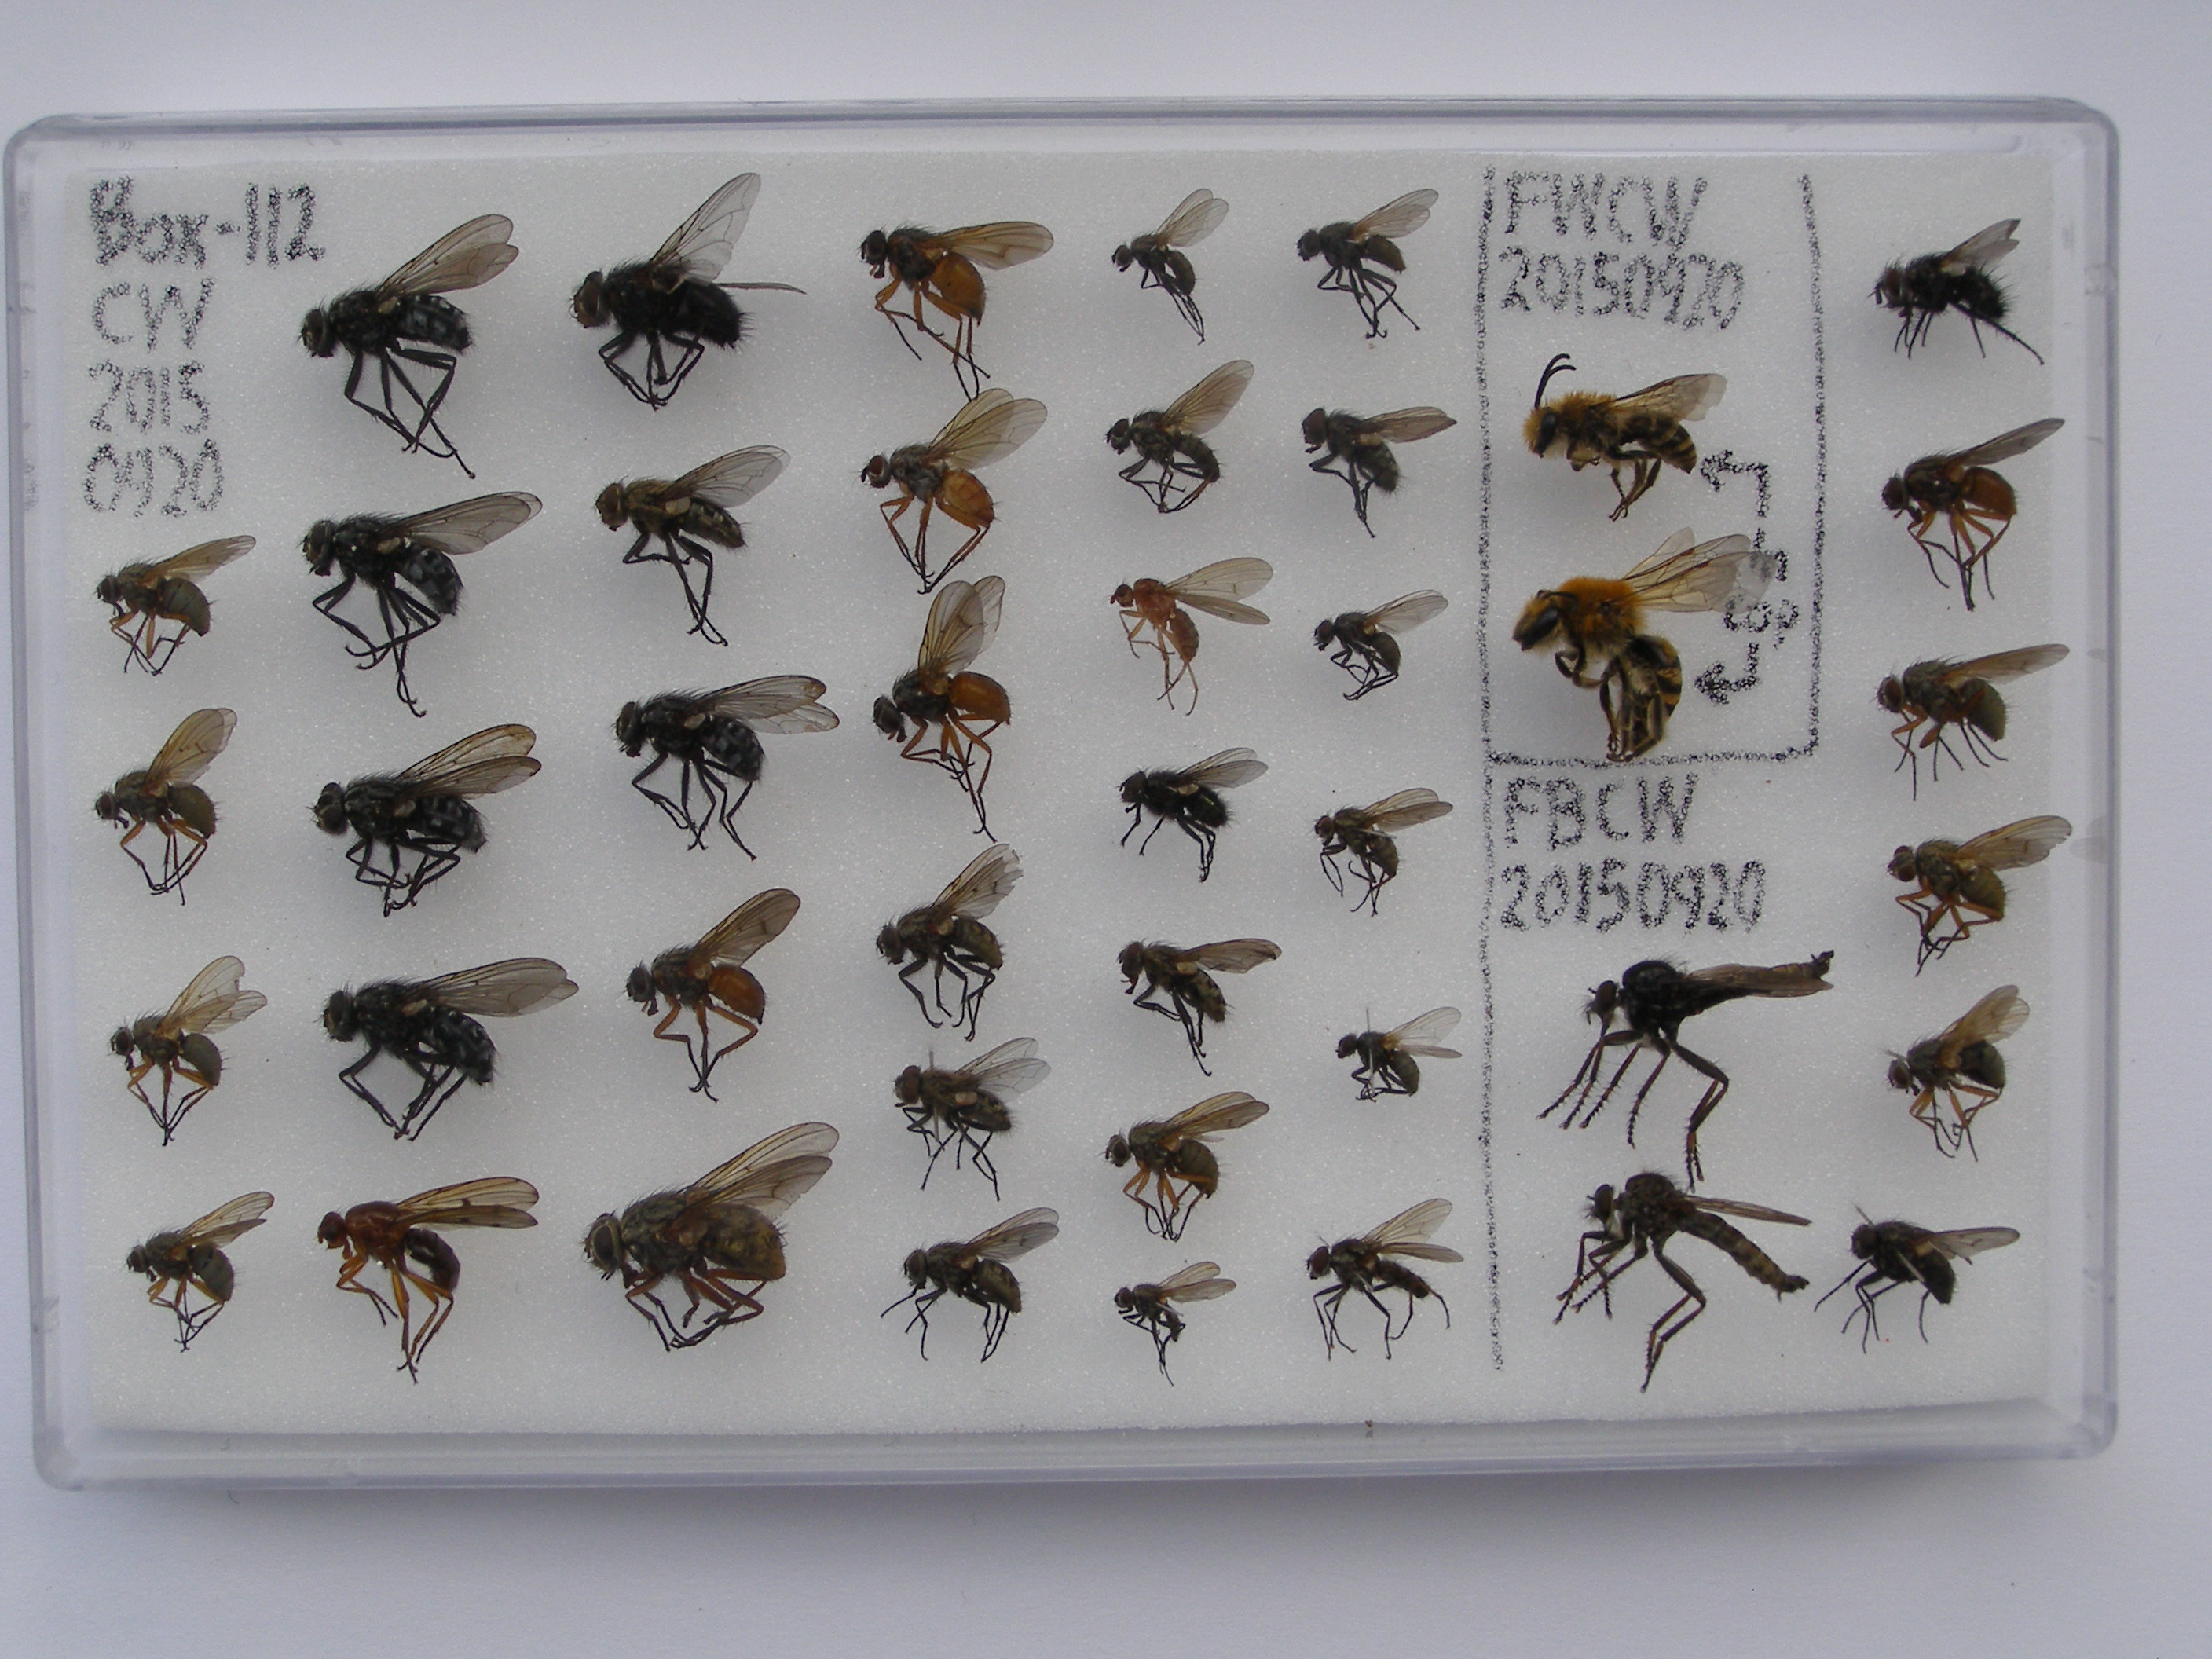 Box-112
CW
2015
0920
FWCW
20150920
FBCW
20150920